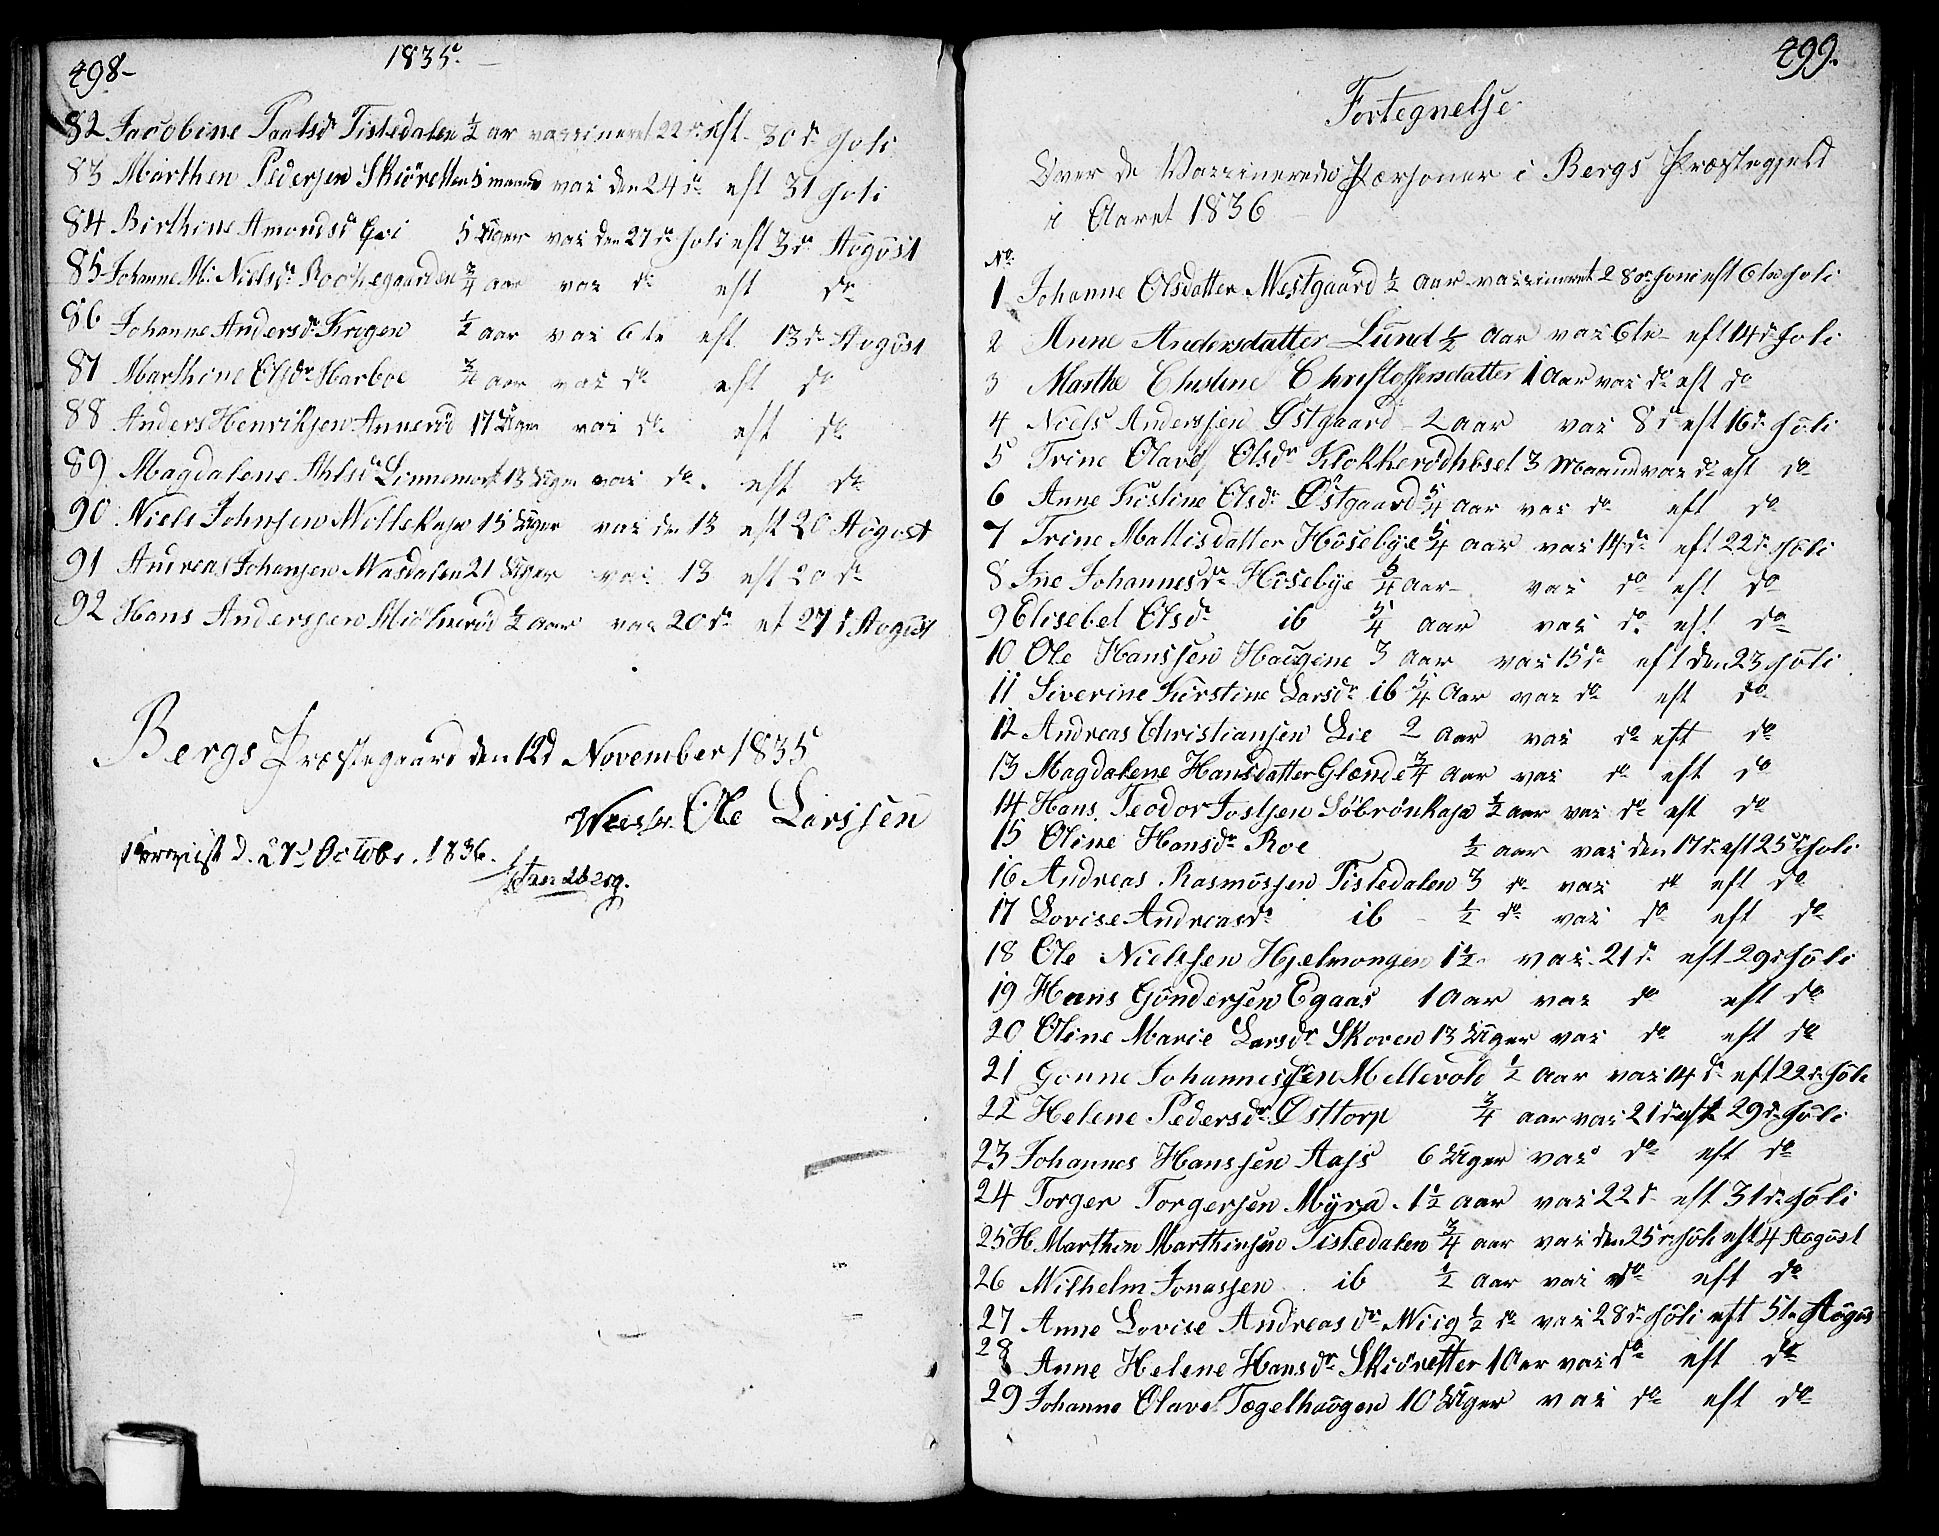 498-
1835.
82 Jacobine Paalsdr Tistedalen ½ ar vaxsineret 22 dr eft 30 dr Joli
83 Marthen Pedersen Skiöretten 5 maaned vax den 24 dr eft 31 Joli
84 Birthine Amondsd 5 Uger vax den 27 dr Joli eft 3 dr Augùst
85 Johanne M: Nielsdr ¾ aar vax do eft do
86 Johanne Andersdr Krogen ½ aar vax 6te eft 13de Augùst
87 Marthine Olsdr Harboe ¾ aar vax do eft do
88 Anders Henriksen Annerød 17 Uger vax do eft do
89 Magdalene Linnemork 13 Uger vax do eft do
90 Niels Johnsen 15 Uger vax de 13 eft 20 Aùgust
91 Andreas Johansen Wasdalen 21 Uger vax 13 eft 20 do
92 Hans Anderssen Miölnerød ½ aar vax 20 dr ef 27 d Augùst
Bergs Præstegaard den 12d November 1835
Ole Larssen
d. 27d Octobr. 1836.
499.
Fortegnelse
Over de Vaxsinerede Persjoner i Bergs Præstegjeld
i Aaret 1836
No
1 Johanne Olsdatter Westgaard ½ aar vaxsineret 28 dr Joni eft 6te Joli
2 Anne Andersdatter Lund ½ Aar vax 6te eft 14 dr Joli
3 Marthe Christine Christoffersdatter 1 Aar vax do eft do
4 Niels Anderssen Østgaard 2 aar vax 8 d eft 16 dr Joli
5 Trine Olave Olsdr Klokkerødhùset 3 Maaned vax do eft do
6 Anne Kistine Olsdr Østgaard 5/4 aar vax do eft do
7 Trine Mattisdatter Hùsebye 5/4 aar vax 14 dr eft 22 dr Joli
8 Ine Johannesdr Hùsebye 5/4 aar vax do eft do
9 Elisebet Olsdr ib 5/4 aar vax do eft do
10 Ole Hanssen Haùgene 3 Aar vax 15 de eft den 23 Joli
11 Siverine Kirstine Larsdr ib 5/4 Aar vax do eft do
12 Andreas Christiansen Lie 2 Aar vax do eft do
13 Magdalene Hansdatter Glænde ¾ Aar vax do eft do
14 Hans Teodor Jostsen ½ aar vax do eft do
15 Oline Hansdr Roe ½ aar vax den 17 dr eft 25 dr Joli
16 Andreas Rasmùssen Tistedalen 3 do vax do eft do
17 Lovise Andreasdr ib ½ do vax do eft do
18 Ole Nielssen Hjelmongen 1½ vax 21 d eft 29 d Joli
19 Hans Gùndersen Egaas 1 Aar vax do eft do
20 Oline Marie Larsdr Skoven 13 Uger vax do eft do
21 Gonne Johannessen Mellevold ½ aar vax 14 d eft 22 dr Joli
22 Helene Pedersdr Østtorp ¾ aar vax 21 dr eft 29 dr Joli
23 Johannes Hanssen Aafs 6 Uger vax do eft do
24 Torger Torgersen Myra 1½ aar vax 22 d eft 31 dr Joli
25 H Marthin Marthinsen Tistedalen ¾ aar vax den 25 dr Joli eft 4 Aùgùst
26 Wilhelm Jonassen ib ½ Aar vax do eft do
27 Anne Lovise Andreasdr Wiig ½ do vax 28 dr Joli eft 5te Aùgùs
28 Anne Helene Hansdr Skiöretter 1 Aar vax do eft do
29 Johanne Olave Tægelhaùgen 10 Uger vax do eft do